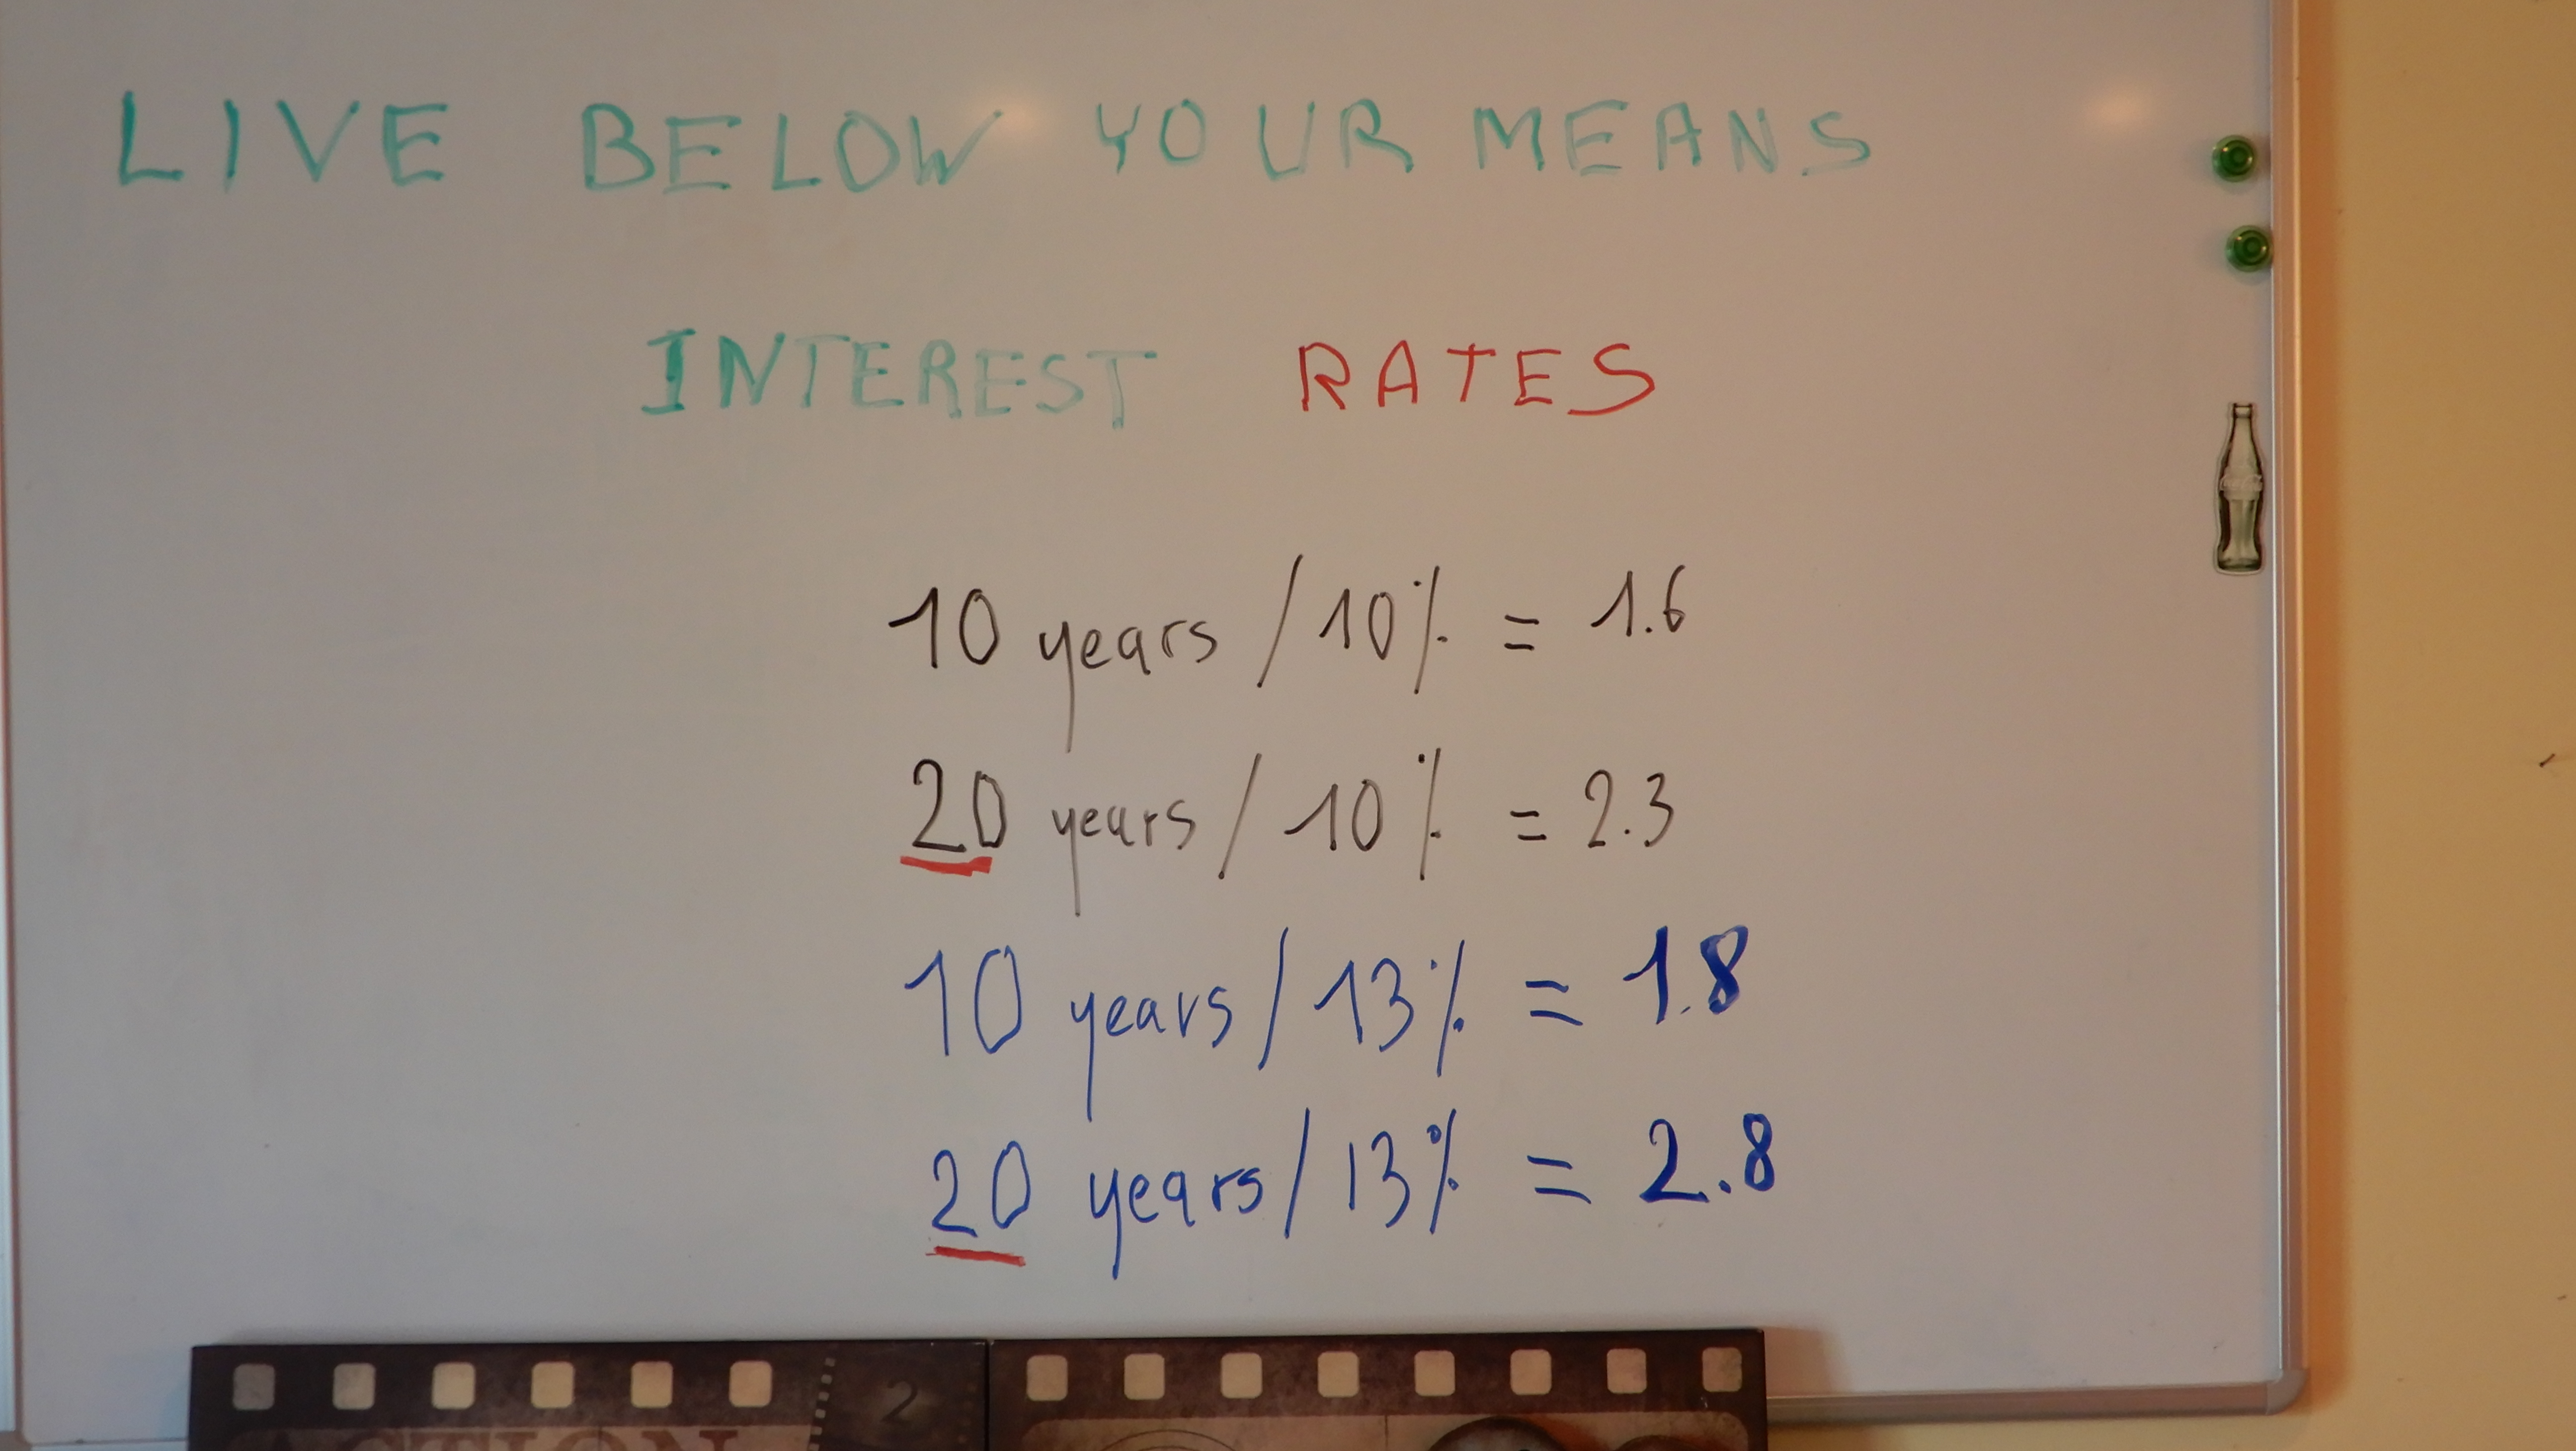 LIVE BELOW YOUR MEANS
INTEREST RATES
10 years / 10% = 1.6
20 years / 10% = 2.3
10 years / 13% = 1.8
20 years / 13% = 2.8
2